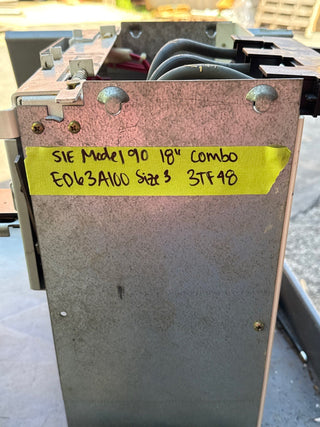 SIE Model 90 18" Combo
ED63A100 Size 3 3TF48